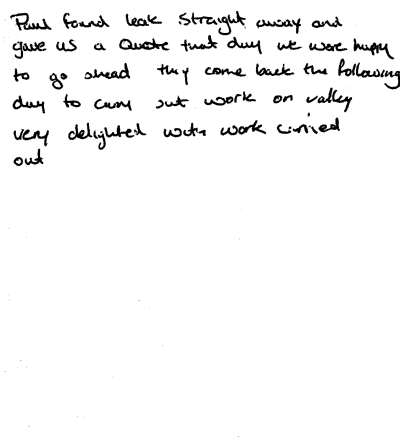 Paul found leak straight away and
gave us a Quote that day we were happy
to go ahead they come back the following
day to carry out work on valley
very delighted with work carried
out